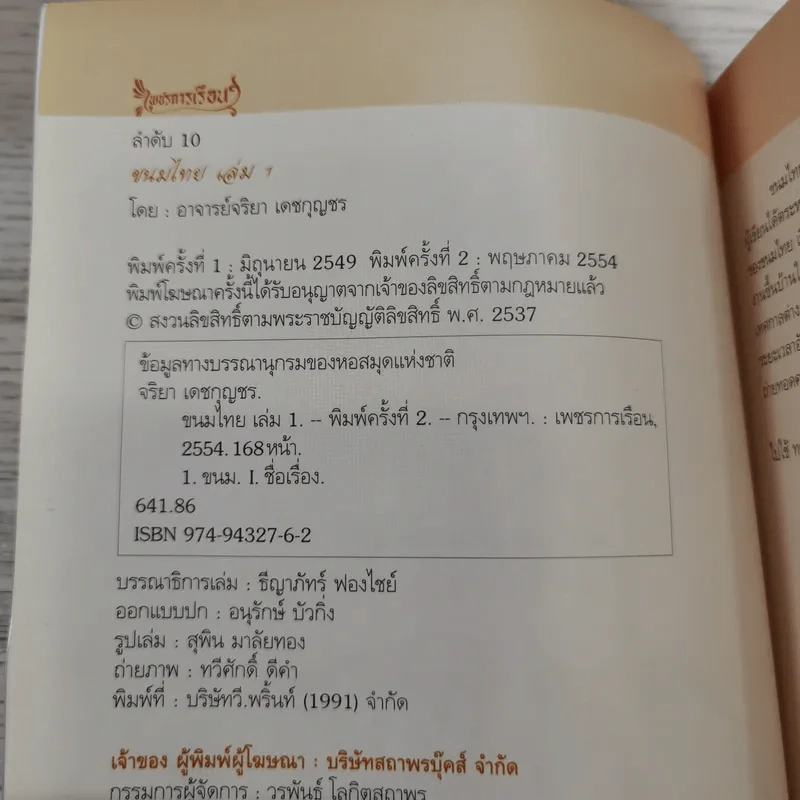 เพชรการเรือน
ลำดับ 10
ขนมไทย เล่ม ๑
โดย : อาจารย์จริยา เดชกุญชร
พิมพ์ครั้งที่ 1 : มิถุนายน 2549 พิมพ์ครั้งที่ 2 : พฤษภาคม 2554
พิมพ์โฆษณาครั้งนี้ได้รับอนุญาตจากเจ้าของลิขสิทธิ์ตามกฎหมายแล้ว
© สงวนลิขสิทธิ์ตามพระราชบัญญัติลิขสิทธิ์ พ.ศ. 2537
ข้อมูลทางบรรณานุกรมของหอสมุดแห่งชาติ
จริยา เดชกุญชร.
ขนมไทย เล่ม 1. -- พิมพ์ครั้งที่ 2. -- กรุงเทพฯ. : เพชรการเรือน,
2554. 168 หน้า.
1. ขนม. I. ชื่อเรื่อง.
641.86
ISBN 974-94327-6-2
บรรณาธิการเล่ม : ธีญาภัทร์ ฟองไชย์
ออกแบบปก : อนุรักษ์ บัวกิ่ง
รูปเล่ม : สุพิน มาลัยทอง
ถ่ายภาพ : ทวีศักดิ์ ดีคำ
พิมพ์ที่ : บริษัทวี.พริ้นท์ (1991) จำกัด
เจ้าของ ผู้พิมพ์ผู้โฆษณา : บริษัทสถาพรบุ๊คส์ จำกัด
กรรมการผู้จัดการ : วรพันธ์ โลกิตสถาพร
ขนมไทย
ของขนมไทย